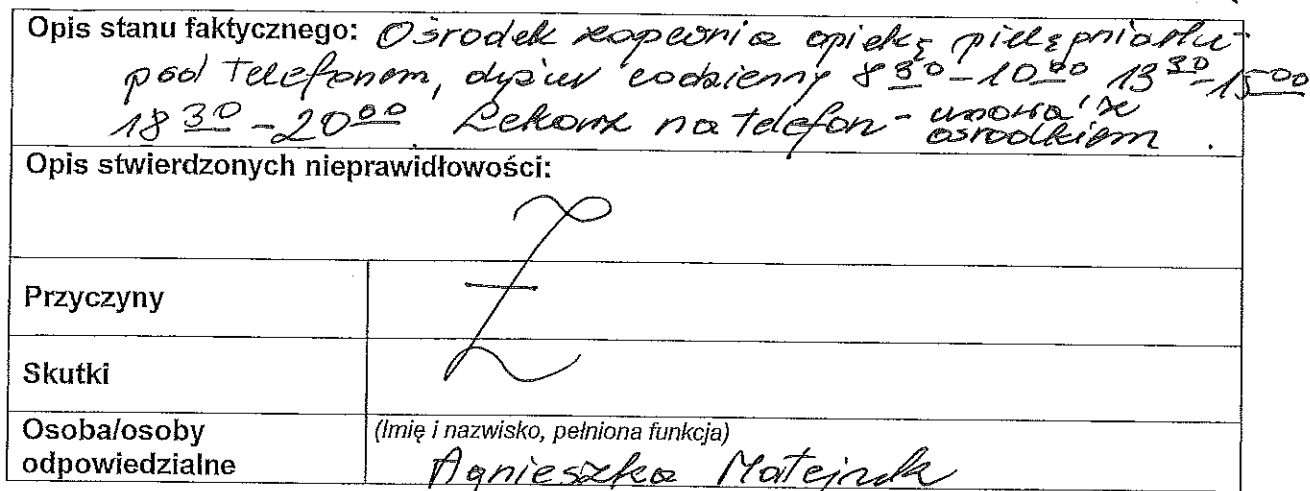 Opis stanu faktycznego: Ośrodek zapewnia opiekę pielęgniarki-
pod telefonem, dyżur codzienny 8 30 - 10 00 13 30 - 15 00
18 30 - 20 00 Lekarz na telefon - umowa z ośrodkiem.
Opis stwierdzonych nieprawidłowości:
Przyczyny
Skutki
Osoba/osoby odpowiedzialne
(Imię i nazwisko, pełniona funkcja)
Agnieszka